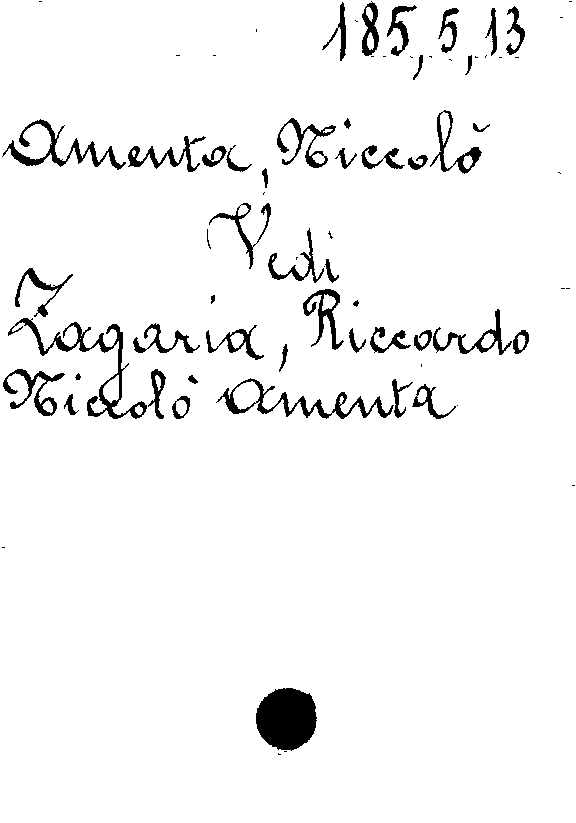 185,5,13
Amenta, Niccolò
Vedi
Zagaria, Riccardo
Niccolò Amenta